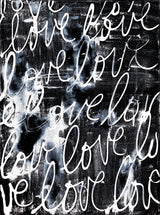 love love
love love
love love
love love
love love
love love lo
ve love love